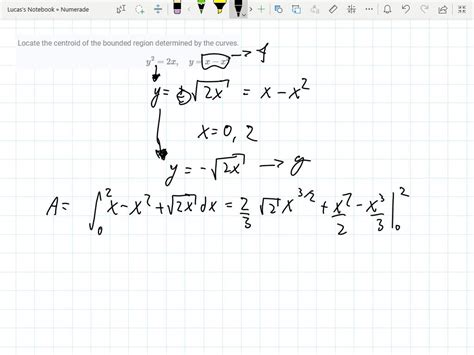 Lucas's Notebook » Numerade
Locate the centroid of the bounded region determined by the curves.
y² = 2x, y = x − x² → f
y = ±√2x = x − x²
x = 0, 2
y = −√2x → g
A = ∫₀² x − x² + √2x dx = 2/3 √2 x^3/2 + x²/2 − x³/3 |₀²